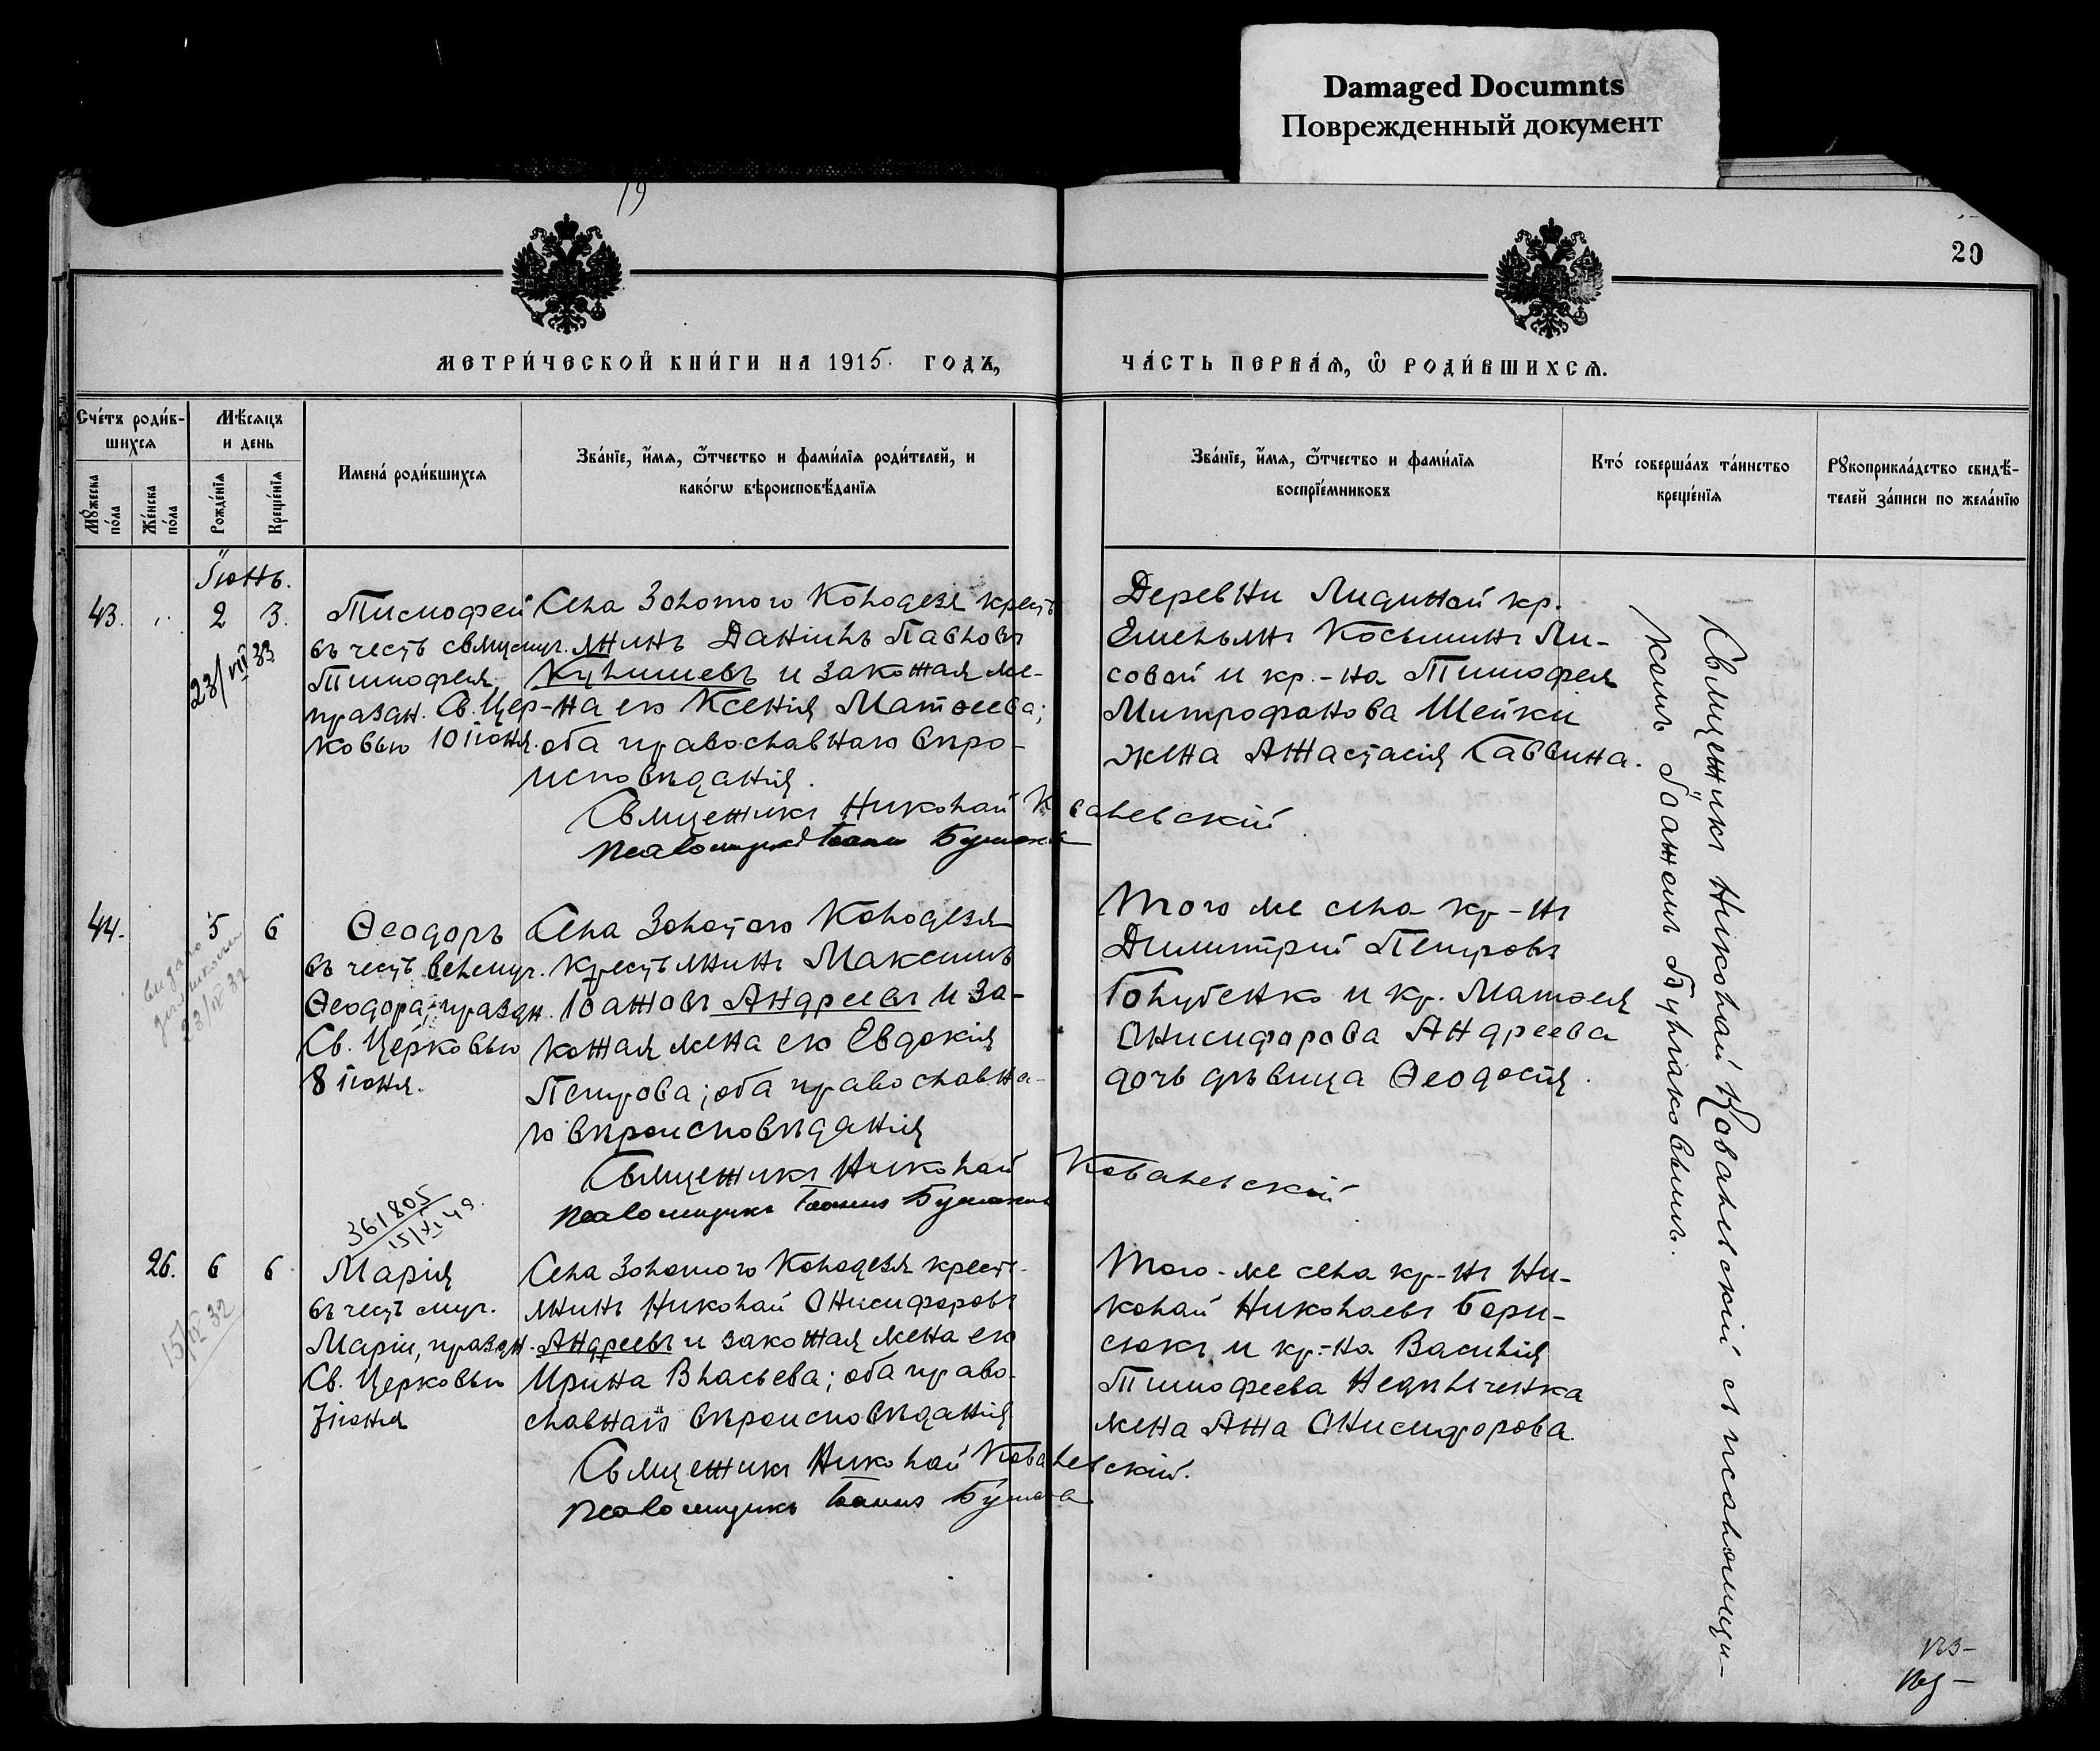 Damaged Documnts
Поврежденный документ
19
20
МЕТРИ́ЧЕСКОЙ КНИ́ГИ НА 1915. ГОДЪ,
ЧА́СТЬ ПЕРВАѦ, Ѡ РОДИ́ВШИХСѦ.
Сче́тъ роди́в-
шихсѧ
Мѣ́сѧцъ
и день
Мꙋ́жеска по́ла
Же́нска по́ла
Рожде́нїѧ
Креще́нїѧ
Имена́ роди́вшихсѧ
Зва́нїе, и́мѧ, ѻ́тчество и фами́лїѧ роди́телей, и
како́гѡ вѣроисповѣ́данїѧ
Зва́нїе, и́мѧ, ѻ́тчество и фами́лїѧ
воспрїе́мниковъ
Кто́ соверша́лъ та́инство
креще́нїѧ
Рꙋкоприкла́дство свидѣ́-
телей за́писи по жела́нїю
Іюнь.
43. 2 3.
23/VII 33
Тимофей
въ честь свящмуч.
Тимофея,
праздн. Св. Цер-
ковью 10 іюня.
Села Золотого Колодезя кресть
янинъ Даніилъ Павловъ
Кулишевъ и законная же-
на его Ксенія Матѳеева;
оба православнаго вѣро-
исповѣданія.
Священникъ Николай Ковалевскій
Псаломщикъ Іоаннъ
Деревни Лидиной кр.
Емельянъ Косьминъ Ли-
совой и кр.-на Тимофея
Митрофанова Шейки
жена Анастасія Саввина.
44. 5 6
выдано
23/IV 32
Ѳеодоръ
въ честь велмуч.
Ѳеодора, праздн.
Св. Церковью
8 іюня.
Села Золотого Колодезя
крестьянинъ Максимъ
Іоанновъ Андреевъ и за-
конная жена его Евдокія
Петрова; оба православна-
го вѣроисповѣданія
Священникъ Николай Ковалевскій
Псаломщикъ Іоаннъ
Того же села кр-нъ
Димитрій Петровъ
Голубенко и кр. Матѳея
Онисифорова Андреева
дочь дѣвица Ѳеодосія.
361805
15/XI 49.
26. 6 6
15/IV 32
Марія
въ честь муч.
Маріи, праздн.
Св. Церковью
7 іюня
Села Золотого Колодезя кресть-
янинъ Николай Онисифоровъ
Андреевъ и законная жена его
Ирина Власьева; оба право-
славнаго вѣроисповѣданія
Священникъ Николай Ковалевскій.
Псаломщикъ Іоаннъ
Того-же села кр-нъ Ни-
колай Николаевъ Бори-
сюкъ и кр.-на Василія
Тимофеева Недильченка
жена Анна Онисифорова.
Священникъ Николай Ковалевскій съ псаломщи-
комъ Іоанномъ Булгаковымъ.